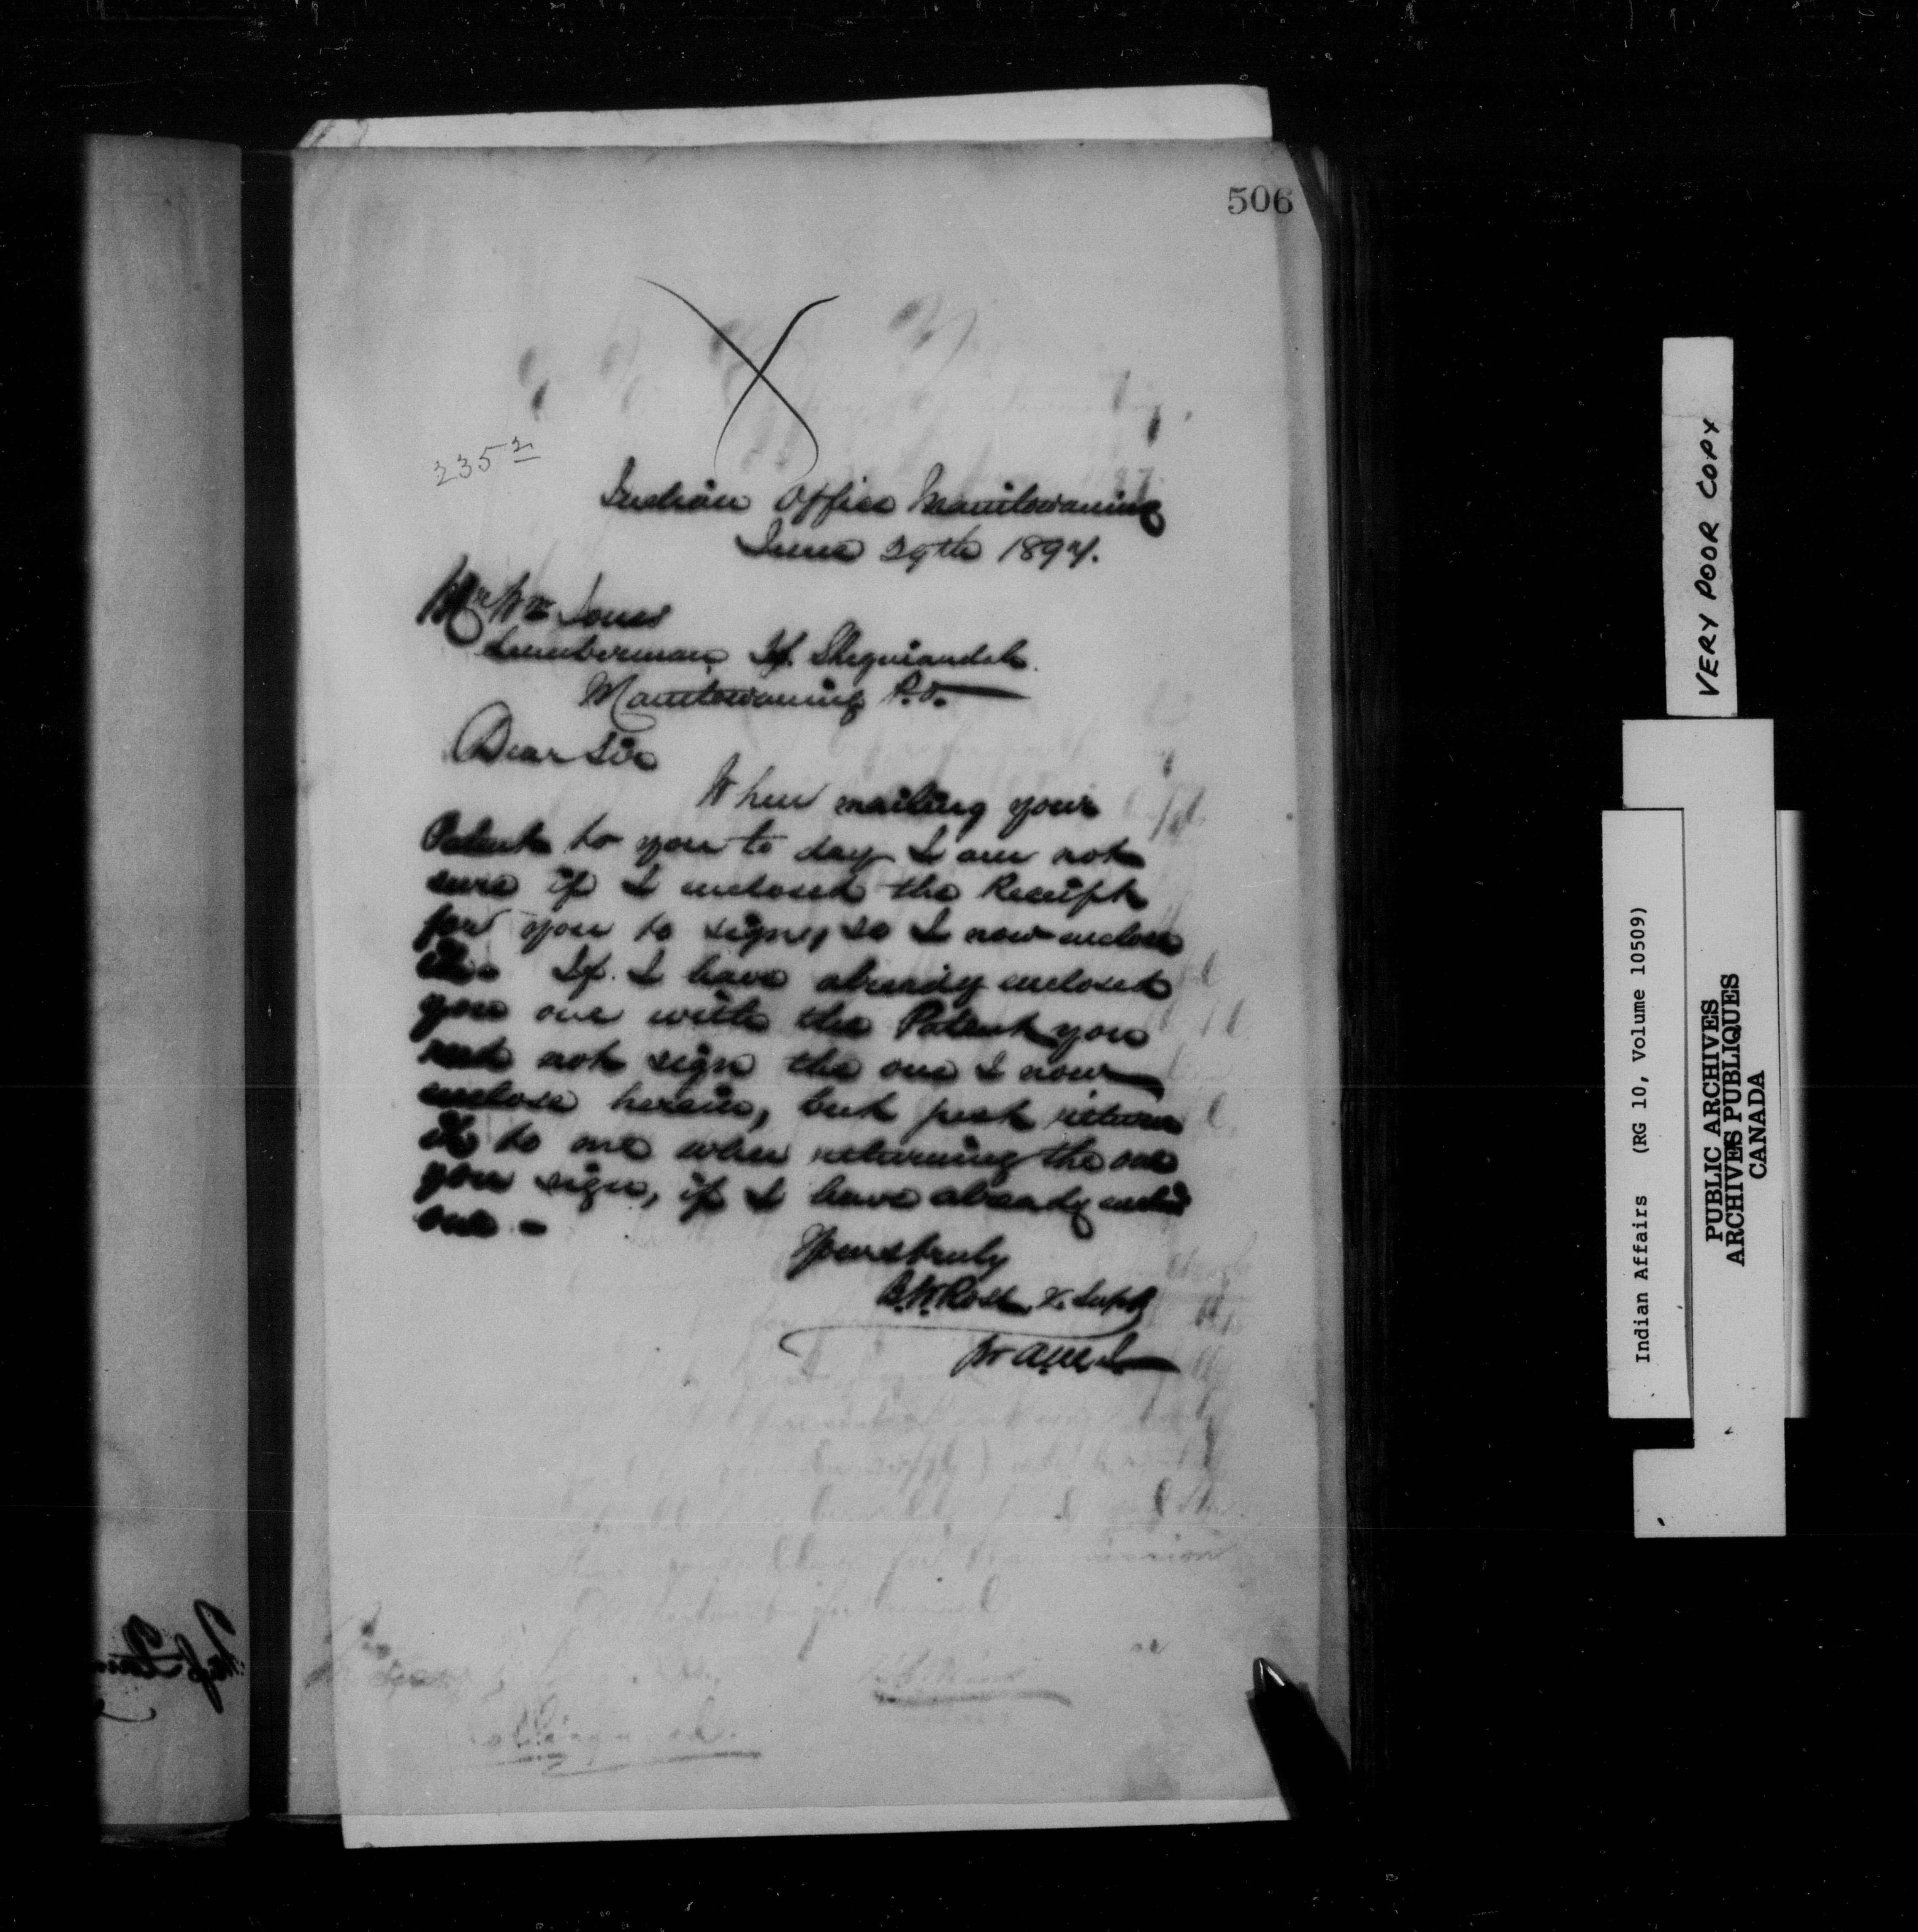 506
235 2
Indian Office Manitowaning
June 29th 1897.
Mr Wm Jones
Lumberman Tp. Sheguiandah.
Manitowaning P.O.
Dear Sir
When mailing your
Patent to you to day I am not
sure if I enclosed the Receipt
for you to sign, so I now enclose
it. If I have already enclosed
you one with the Patent you
need not sign the one I now
enclose herein, but just return
it to me when returning the one
you sign, if I have already encl'd
one -
Yours truly
B.W. Ross, V. Supt
VERY POOR COPY
Indian Affairs (RG 10, Volume 10509)
PUBLIC ARCHIVES
ARCHIVES PUBLIQUES
CANADA